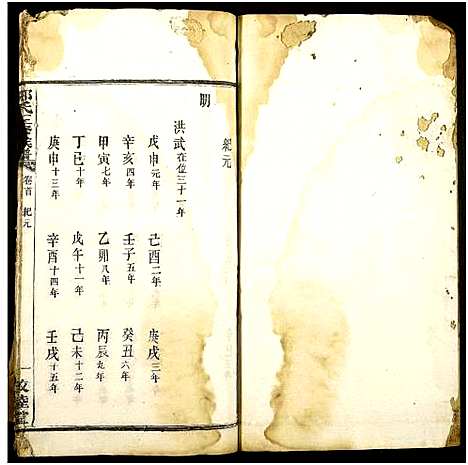 紀元
明
洪武在位三十一年
戊申元年 己酉二年 庚戌三年
辛亥四年 壬子五年 癸丑六年
甲寅七年 乙卯八年 丙辰九年
丁巳十年 戊午十一年 己未十二年
庚申十三年 辛酉十四年 壬戌十五年
卷首 紀元 一